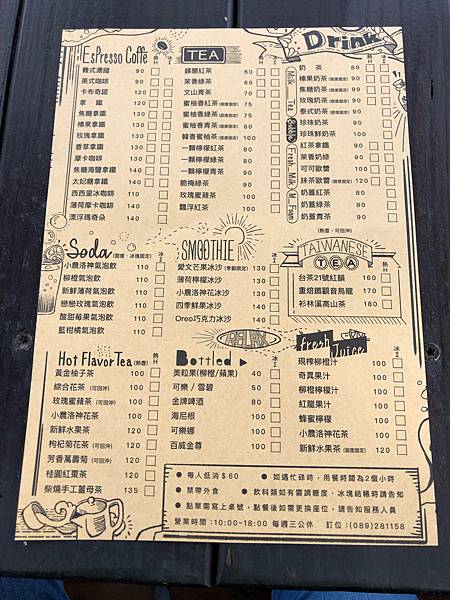 Drink
EsPresso Coffe 冰I 熱H
義式濃縮 90
美式咖啡 90
卡布奇諾 120
拿鐵 120
焦糖拿鐵 130
榛果拿鐵 130
玫瑰拿鐵 130
香草拿鐵 130
摩卡咖啡 130
焦糖海鹽拿鐵 135
太妃糖拿鐵 135
西西里冰咖啡 110
薄荷摩卡咖啡 140
漂浮瑪奇朵 140
TEA
錫蘭紅茶 60
茉香綠茶 60
文山青茶 60
蜜柚香紅茶 75
蜜柚香綠茶 75
蜜柚香青茶 80
韓香蜜柚茶 100
一顆檸檬紅茶 80
一顆檸檬綠茶 80
一顆檸檬青茶 90
脆梅綠茶 90
玫瑰蜜蘋茶 100
飄浮紅茶 100
Milk Tea
奶茶 80
榛果奶茶 90
焦糖奶茶 90
玫瑰奶茶 90
泰式奶茶 90
Bubble
珍珠奶茶 90
珍珠鮮奶茶 100
Fresh Milk
紅茶拿鐵 90
茉香奶綠 90
可可歐蕾 100
抹茶歐蕾 120
Foam
奶蓋紅茶 80
奶蓋綠茶 80
奶蓋青茶 90
Soda
小農洛神氣泡飲 110
柳橙氣泡飲 110
新鮮薄荷氣泡飲 110
戀戀玫瑰氣泡飲 110
酸甜莓果氣泡飲 110
藍柑橘氣泡飲 110
SMOOTHIE 冰I
愛文芒果冰沙(季節限定) 130
薄荷檸檬冰沙 130
小農洛神花冰沙 130
四季鮮果冰沙 130
Oreo巧克力冰沙 150
(熱壺、可回沖)
TAIWANESE TEA
台茶21號紅韻 160
重焙鐵觀音烏龍 170
杉林溪高山茶 180
Hot Flavor Tea (熱壺) 熱H
黃金柚子茶 100
綜合花茶(可回沖) 100
玫瑰蜜蘋茶(可回沖) 100
小農洛神花茶 100
新鮮水果茶 120
枸杞菊花茶(可回沖) 120
芳香萬壽菊(可回沖) 120
桂圓紅棗茶 120
柴燒手工薑母茶 135
Bottled 冰I
美粒果(柳橙/蘋果) 40
可樂/雪碧 50
金牌啤酒 80
海尼根 100
可樂娜 100
百威金尊 100
fresh Juice 冰I
現榨柳橙汁 100
奇異果汁 100
柳橙檸檬汁 100
紅龍果汁 100
蜂蜜檸檬 100
小農洛神汁 100
新鮮水果茶 100
● 每人低消$60 ● 如遇忙碌時,用餐時間為2個小時
● 禁帶外食 ● 飲料類如有需調糖度、冰塊結帳時請告知
● 點單需寫上桌號,點餐後如需更換座位,請告知服務人員
營業時間:10:00~18:00 每週三公休 訂位:(089)281158